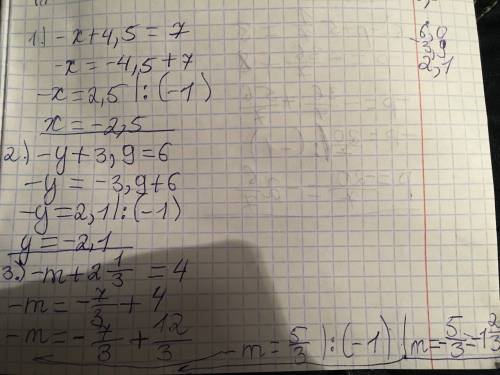 1.) -x+4,5 = 7
-x = -4,5+7
-x = 2,5 |: (-1)
x = -2,5
2.) -y + 3,9 = 6
-y = -3,9+6
-y = 2,1 |: (-1)
y = -2,1
3.) -m + 2 1/3 = 4
-m = -7/3 + 4
-m = -7/3 + 12/3
-m = 5/3 ) : (-1) (m = -5/3 = -1 2/3
6,0
3,9
2,1